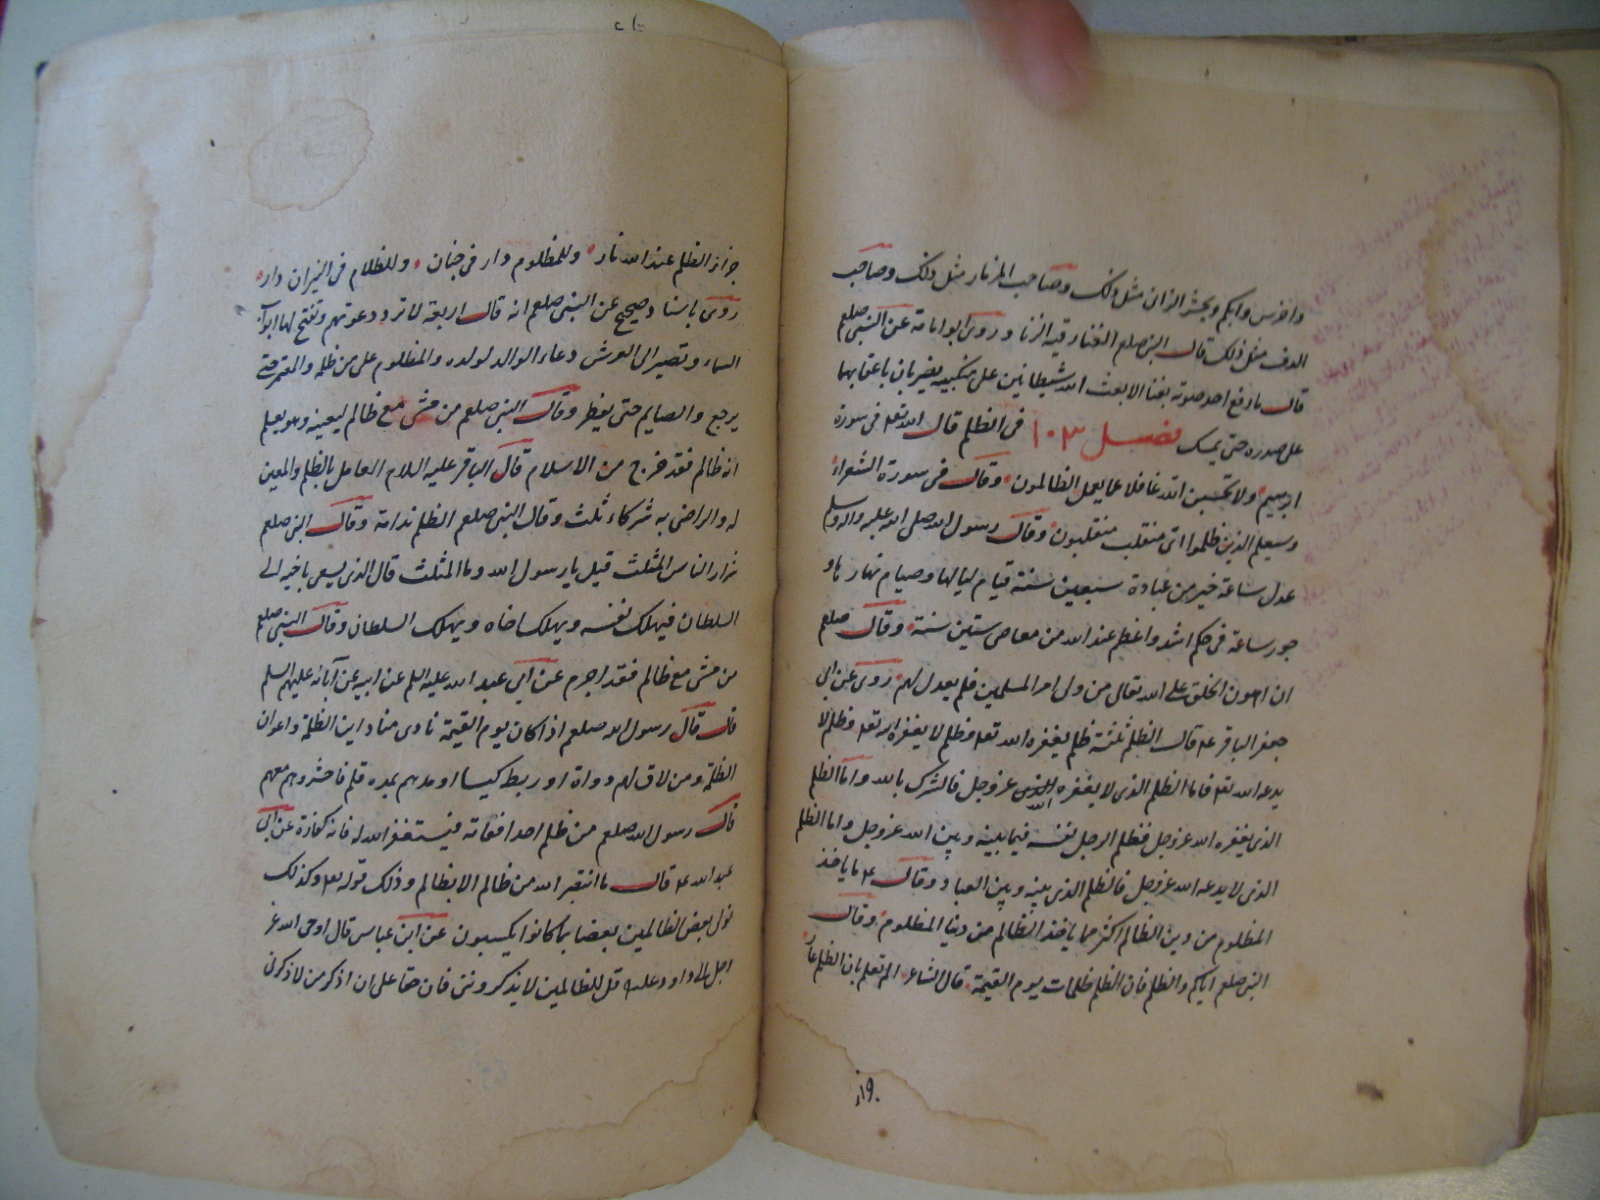 واخرس وابكم ويحشر الزانى مثل ذلك وصاحب المزمار مثل ذلك وصاحب
الدف مثل ذلك قال النبى صلعم الغناء رقية الزنا وروى ابو امامة عن النبى صلعم
قال ما رفع احد صوته بغنا الا بعث الله شيطانين على منكبيه يضربان باعقابهما
على صدره حتى يمسك فصل ١٠٣ فى الظلم قال الله تعه فى سورة
ابرهيم ولا تحسبن الله غافلا عما يعمل الظالمون وقال فى سورة الشعراء
وسيعلم الذين ظلموا اى منقلب ينقلبون وقال رسول الله صلى الله عليه واله وسلم
عدل ساعة خير من عبادة سبعين سنة قيام ليالها وصيام نهارها و
جور ساعة فى حكم اشد واعظم عند الله من معاصى ستين سنة وقال صلعم
ان اهون الخلق على الله تعالى من ولى امر المسلمين فلم يعدل لهم روى عن ابى
جعفر الباقر عه قال الظلم ثلثة ظلم يغفره الله تعه وظلم لا يغفره الله تعه وظلم لا
يدعه الله تعه فاما الظلم الذى لا يغفره الله عز وجل فالشرك بالله واما الظلم
الذى يغفره الله عز وجل فظلم الرجل نفسه فيما بينه وبين الله عز وجل واما الظلم
الذى لا يدعه الله عز وجل فالظلم الذى بينه وبين العباد وقال عه ما ياخذ
المظلوم من دين الظالم اكثر مما ياخذ الظالم من دنيا المظلوم وقال
النبى صلعم اياكم والظلم فان الظلم ظلمات يوم القيمة قال الشاعر الم تعلم بان الظلم عار
١٩٠
جزاء الظلم عند الله نار وللمظلوم دار فى جنان وللظلام فى النيران دار
روى باسناد صحيح عن النبى صلعم انه قال اربعة لا ترد دعوتهم وتفتح لها ابواب
السماء وتصير الى العرش دعاء الوالد لولده والمظلوم على من ظلمه والمعتمر حتى
يرجع والصايم حتى يفطر وقال النبى صلعم من مشى مع ظالم ليعينه وهو يعلم
انه ظالم فقد خرج من الاسلام قال الباقر عليه السلام العامل بالظلم والمعين
له والراضى به شركاء ثلث وقال النبى صلعم الظلم ندامة وقال النبى صلعم
شرار الناس المثلث قيل يا رسول الله وما المثلث قال الذى يسعى باخيه الى
السلطان فيهلك نفسه ويهلك اخاه ويهلك السلطان وقال النبى صلعم
من مشى مع ظالم فقد اجرم عن ابى عبد الله عليه السلم عن ابيه عن آبائه عليهم السلم
قال قال رسول الله صلعم اذا كان يوم القيمة نادى مناد اين الظلمة واعوان
الظلمة ومن لاق لهم دواة او ربط كيسا او مدهم بمده قلم فاحشروهم معهم
قال رسول الله صلعم من ظلم احدا ففاته فليستغفر الله له فانه كفارة عن ابى
عبد الله عه قال ما انتصر الله من ظالم الا بظالم وذلك قوله تعه وكذلك
نولى بعض الظالمين بعضا بما كانوا يكسبون عن ابن عباس قال اوحى الله عز
اجل الى داود عليه قل للظالمين لا يذكروننى فان حقا على ان اذكر من لا ذكرنى